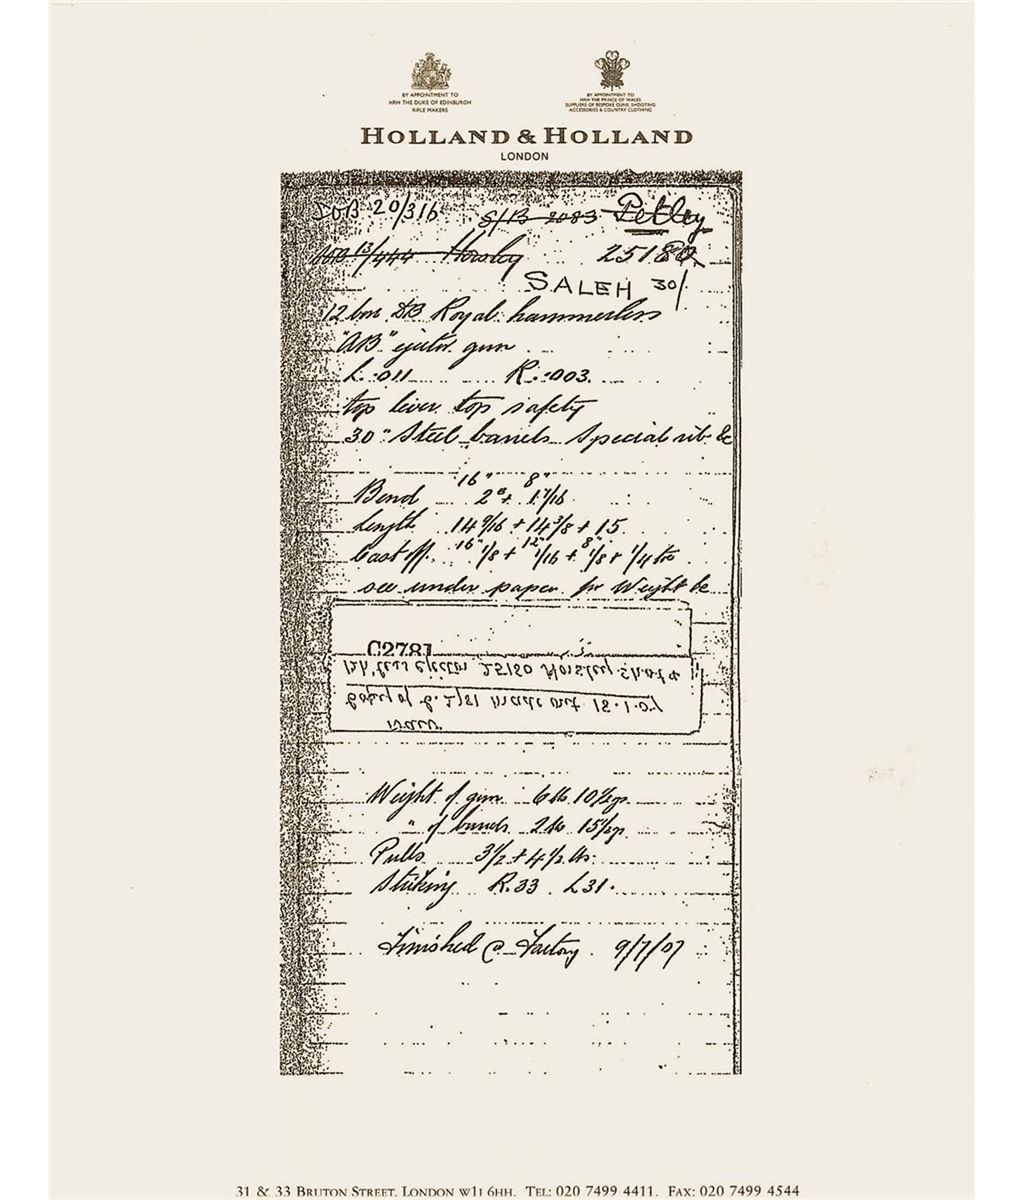 BY APPOINTMENT TO
HRH THE DUKE OF EDINBURGH
RIFLE MAKERS
BY APPOINTMENT TO
HRH THE PRINCE OF WALES
SUPPLIERS OF BESPOKE GUNS, SHOOTING
ACCESSORIES & COUNTRY CLOTHING
HOLLAND & HOLLAND
LONDON
20/316 S/B 2083 Petley
13/444 25180
SALEH 30/
12 bore DB Royal hammerless
"AB" ejector gun
L. .011 R. .003.
top lever top safety
30" Steel barrels Special rib &c
16" 8"
Bend 2 + 1 7/16
Length 14 9/16 + 14 3/8 + 15
Cast off 16" 1/8 + 12" 1/16 + 8" 1/8 + 1/4 to
see under paper for Weight &c
C2781
25180
made out 18.1.07
Weight of gun 6 lb 10 1/2 ozs
" of barrels 2 lb 15 1/2 ozs
Pulls 3 1/2 + 4 1/2 lbs.
Striking R.33 L31.
Finished @ Factory 9/7/07
31 & 33 BRUTON STREET, LONDON W1J 6HH. TEL: 020 7499 4411. FAX: 020 7499 4544